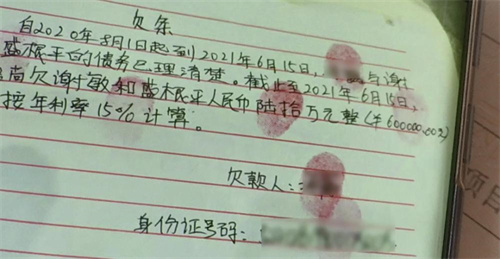 欠条
自2020年8月1日起到2021年6月15日, 与谢
盛根平的债务已理清楚。截止至2021年6月15日,
尚欠谢敏和盛根平人民币陆拾万元整(¥600000.00元)
按年利率15%计算。
欠款人:
身份证号码:
项目